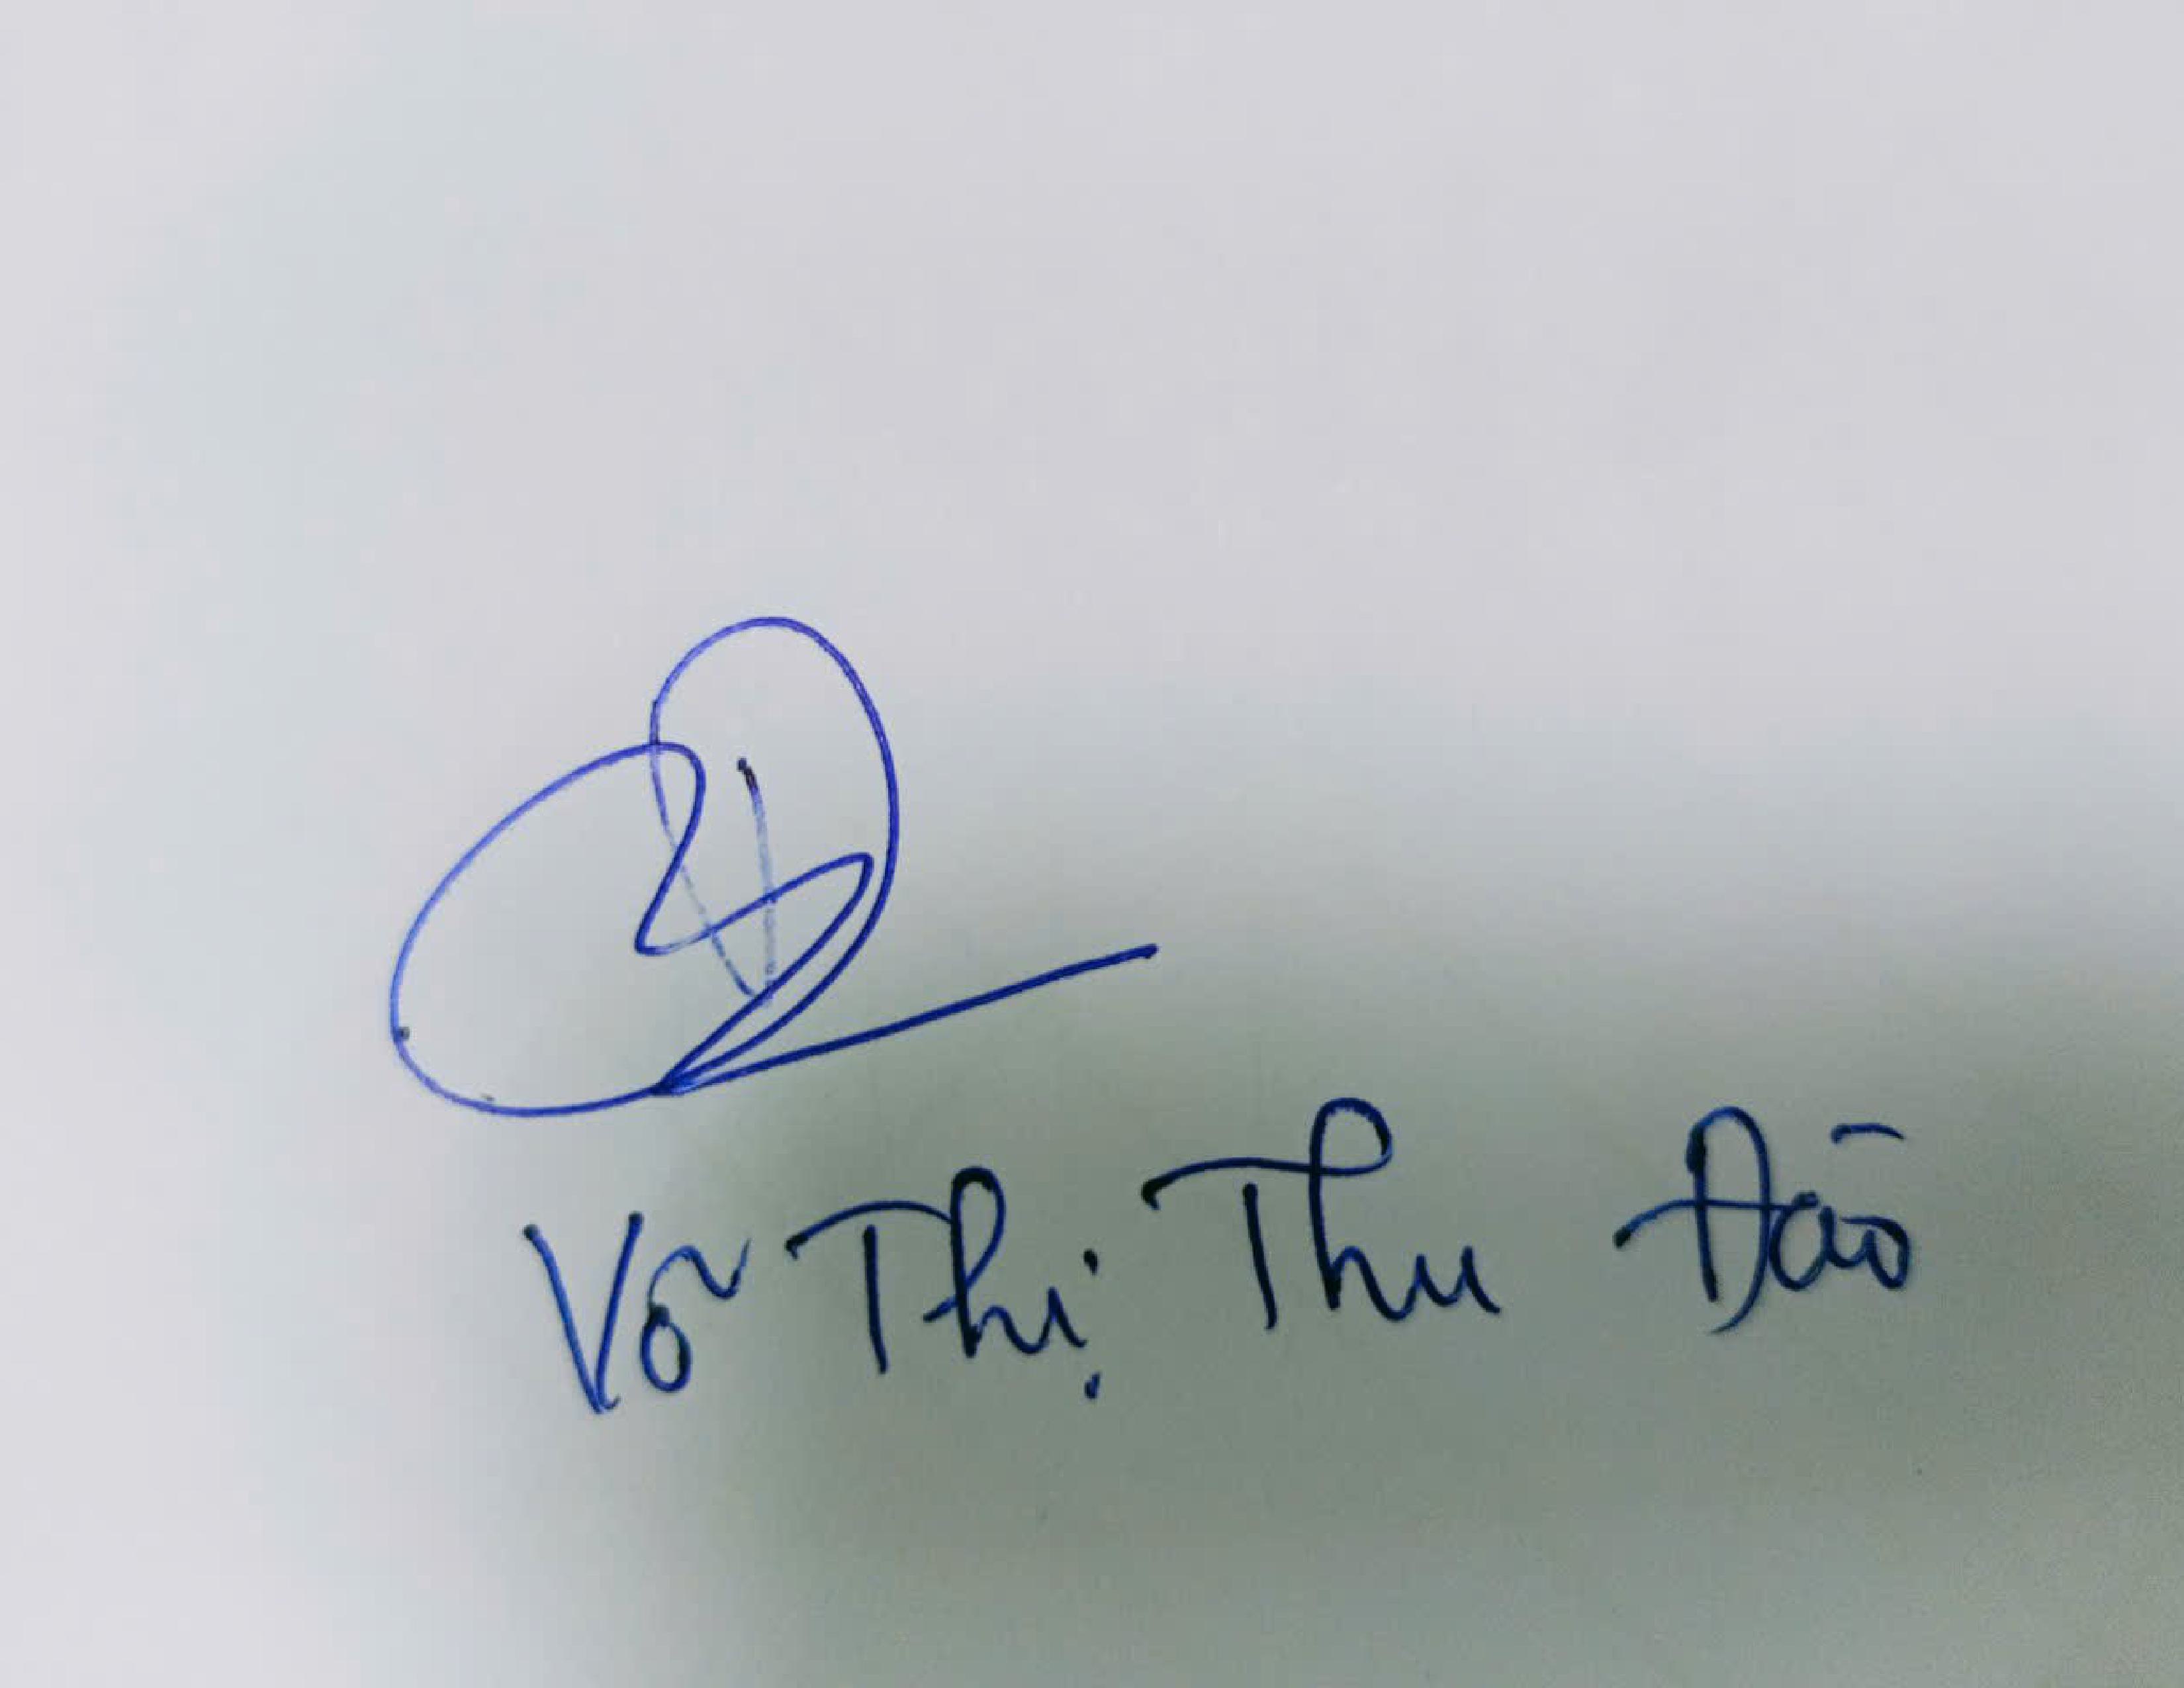 Võ Thị Thu Đào